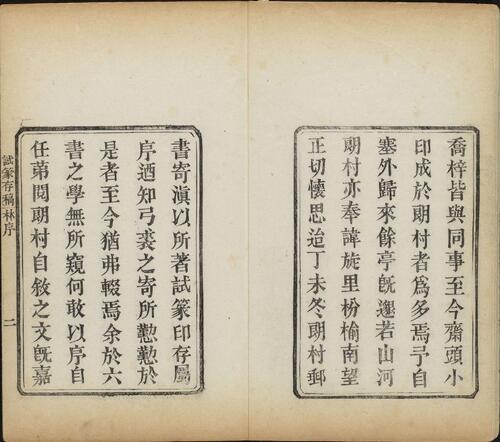 喬梓皆與同事至今齋頭小
印成於朙村者爲多焉予自
塞外歸來餘亭旣邈若山河
朙村亦奉諱旋里枌榆南望
正切懷思迨丁未冬朙村郵
書寄滇以所著試篆印存屬
序迺知弓裘之寄所懃懃於
是者至今猶弗輟焉余於六
書之學無所窺何敢以序自
任苐閱朙村自敘之文旣嘉
試篆存稿林序
二